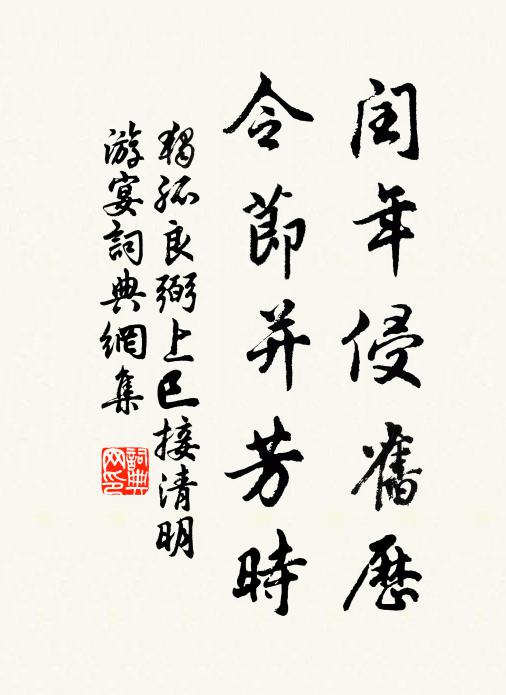 閏年侵舊歷
令節并芳時
獨孤良弼上巳接清明
游宴詞典網集
詞典网印